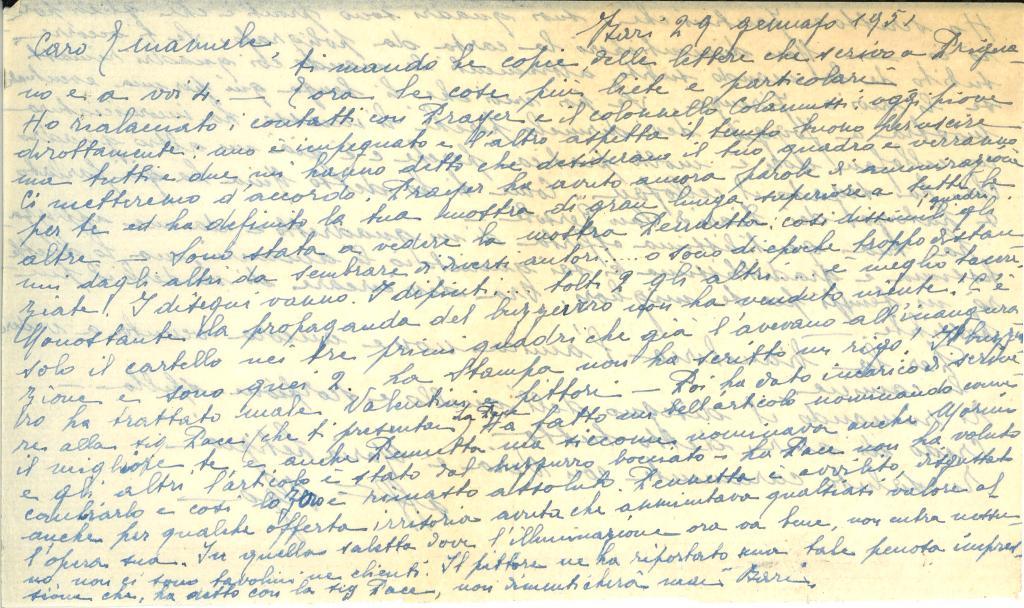 Bari 29 gennaio 1951
Caro Emanuele,
ti mando le copie delle lettere che scrivo a Drigna-
no e a voi ti. — E ora le cose più liete e particolari
Ho riallacciato i contatti con Drayer e il colonnello Colannutti, oggi piove
dirottamente: uno è impegnato e l'altro aspetta il tempo buono per uscire
ma tutti e due mi hanno detto che desiderano il tuo quadro e verranno
Ci metteremo d'accordo. Drayer ha avuto ancora parole di ammirazione
per te ed ha definito la tua mostra di gran lunga superiore a tutte le
altre — Sono stata a vedere la mostra Pennetta: così dissimili i quadri gli
uni dagli altri da sembrare di diversi autori.... o sono di epoche troppo distan
ziate! I disegni vanno. I dipinti.... tolti 2 gli altri.... è meglio tacere
Nonostante la propaganda del buzzurro non ha venduto niente! C'è
solo il cartello nei tre primi quadri che già l'avevano all'inaugura
zione e sono quei 2. La Stampa non ha scritto un rigo! Il buzzur
ro ha trattato male Valentini e pittori — Poi ha dato incarico di scrive
re alla sig Pace (che ti presentai) La Pace ha fatto un bell'articolo nominando come
il migliore te, e anche Pennetta ma siccome nominava anche Morini
e gli altri l'articolo è stato dal buzzurro bocciato — La Pace non ha voluto
cambiarlo e così lo zero è rimasto assoluto. Pennetta è avvilito, disgustato
anche per qualche offerta irrisoria avuta che annientava qualsiasi valore al
l'opera sua. In quella saletta dove l'illuminazione ora va bene, non entra nessu-
no, non ci sono tavolini ne clienti. Il pittore ne ha riportato una tale penosa impres-
sione che, ha detto con la sig Pace, non dimenticherà mai Bari.